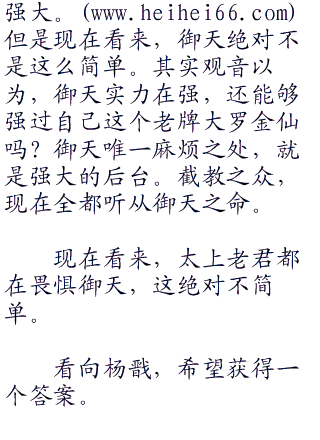 强大。(www.heihei66.com)
但是现在看来，御天绝对不
是这么简单。其实观音以
为，御天实力在强，还能够
强过自己这个老牌大罗金仙
吗？御天唯一麻烦之处，就
是强大的后台。截教之众，
现在全都听从御天之命。
现在看来，太上老君都
在畏惧御天，这绝对不简
单。
看向杨戬，希望获得一
个答案。